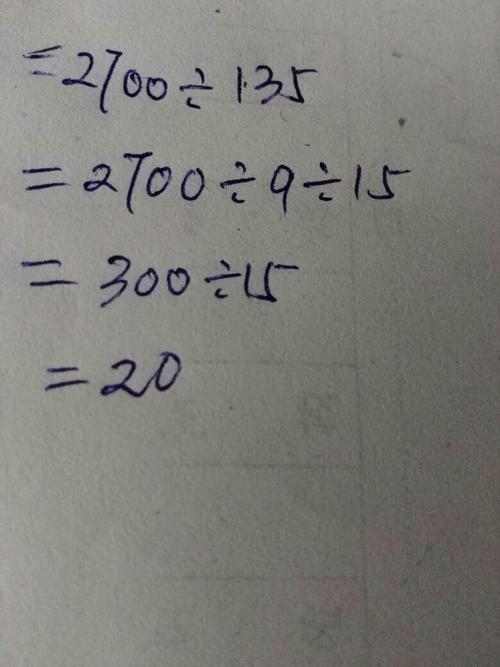 =2700÷135
=2700÷9÷15
=300÷15
=20